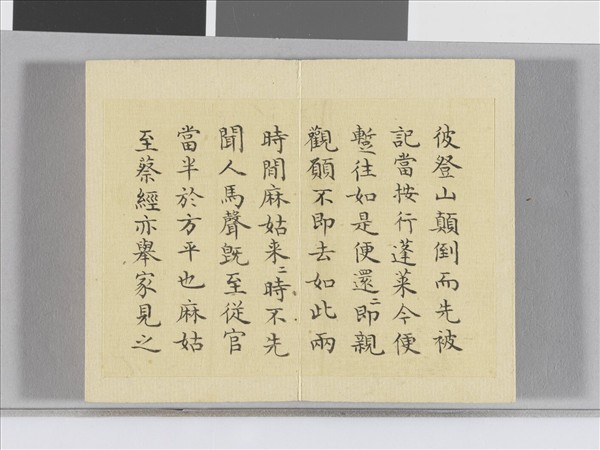 彼登山顛倒而先被
記當按行蓬萊今便
蹔往如是便還〻即親
觀願不即去如此兩
時間麻姑来〻時不先
聞人馬聲既至従官
當半於方平也麻姑
至蔡經亦舉家見之